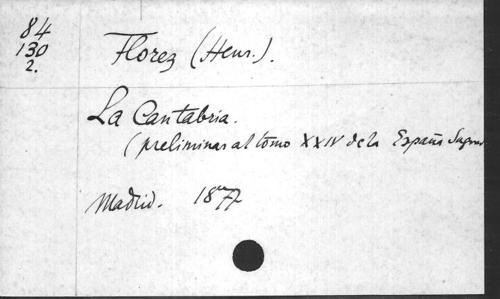 84
130
2.
Florez (Henr.).
La Cantabria.
(preliminar al tomo XXIV de la España Sagrad
Madrid. 1877